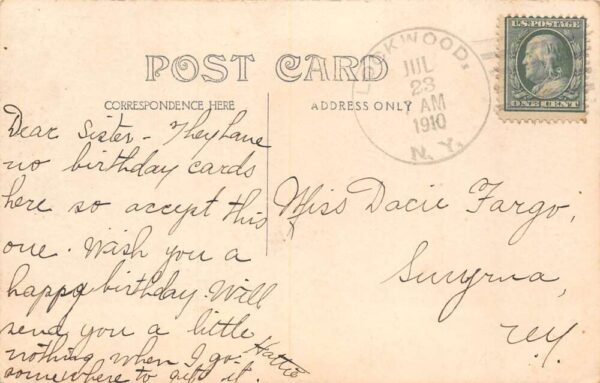 POST CARD
CORRESPONDENCE HERE
ADDRESS ONLY
LOCKWOOD.
JUL
23
AM
1910
N.Y.
U.S.POSTAGE
ONE CENT
Dear Sister - They have
no birthday cards
here so accept this
one. Wish you a
happy birthday. Will
send you a little
nothing when I go
somewhere to get it.
Hattie
Miss Dacie Fargo,
Smyrna,
N.Y.